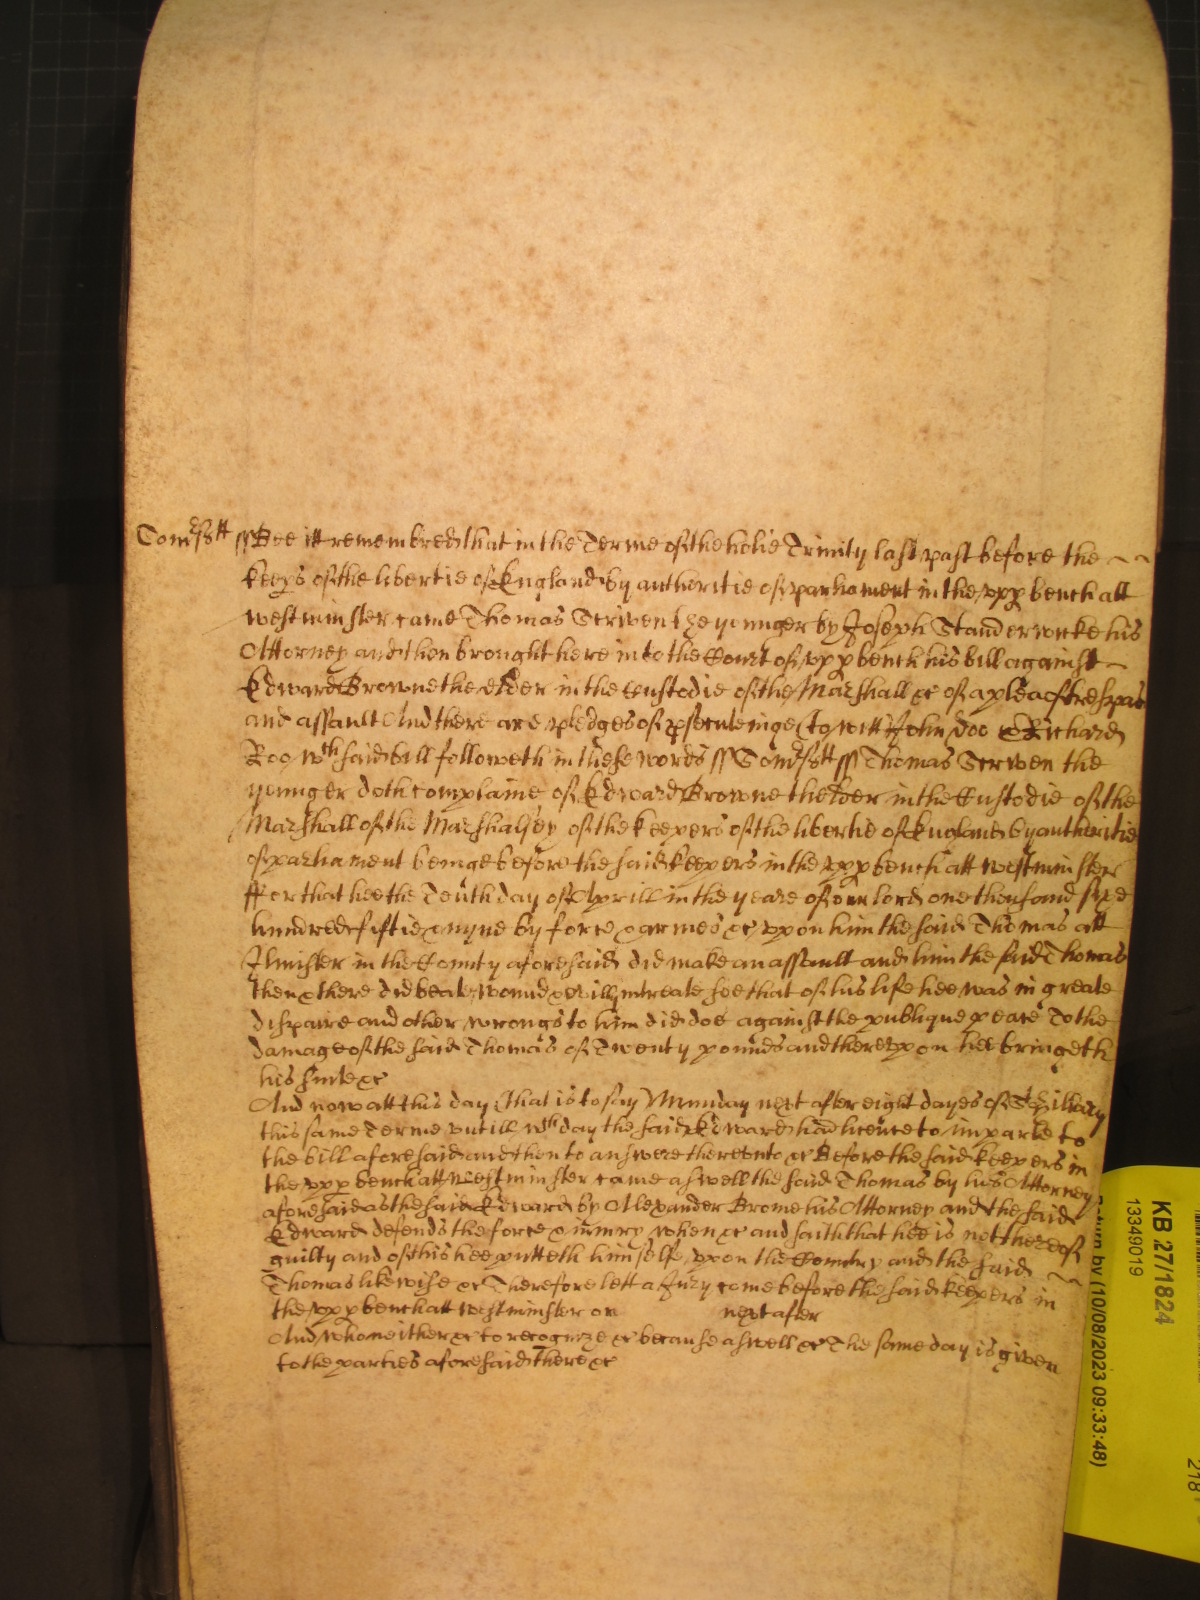 Somsett ss Bee itt remembred that in the Terme of the holie Trinity last past before the
keeps of the libertie of England by authoritie of parliament in the upp bench att
westminster came Thomas Scriven the younger by Joseph Standerwicke his
Attorney and then brought here into the Court of upp bench his bill against
Edward Browne the elder in the Custodie of the Marshall &c of a plea of trespas
and assault And there are pledges of psecuteinge (to witt) John Doo & Richard
Roo wch said bill followeth in these words ss Somsett ss Thomas Scriven the
younger doth complaine of Edward Browne thelder in the Custodie of the
Marshall of the Marshalsey of the keepers of the libertie of England by authoritie
of parliament beinge before the said keepers in the upp bench att westminster
ffor that hee the Tenth day of Aprill in the yeare of our lord one thousand sixe
hundred fiftie & nyne by force & armes &c upon him the said Thomas att
Ilmister in the County aforesaid did make an assault and him the said Thomas
then & there did beate wound & evilly intreate soe that of his life hee was in greate
dispaire and other wrongs to him did doe against the publique peace To the
damage of the said Thomas of Twenty pounds and thereupon hee bringeth
his suite &c
And now att this day (that is to say) Munday next after eight dayes of St Hillary
this same Terme untill wch day the said Edward had licence to imparle to
the bill aforesaid and then to answere thereunto &c Before the said keepers in
the upp bench att westminster came aswell the said Thomas by his Attorney
aforesaid as the said Edward by Allexander Brome his Attorney and the said
Edward defends the force & iniury when &c and saith that hee is not thereof
guilty and of this hee putteth himselfe upon the Country and the said
Thomas likewise &c Therefore lett a Jury come before the said keepers in
the upp bench att westminster on next after
And who neither &c to recognize &c because aswell &c The same day is given
to the parties aforesaid there &c
KB 27/1824
13349019
(10/08/2023 09:33:48)